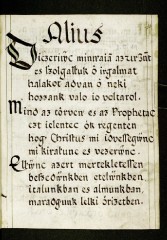 Alius
Diczeriwc minnraia azurunt
es szolgalluk ő irgalmat
halakot advan ő neki
hoszank valo io voltarol.
Mind az törven es az Prophetac
ezt ielentec ők regenten
hogy Christus mi idvessegwnc
mi kiralunc es vezerwnc.
Eltwnc azert mertekletessen
beszedwnkben etelwnkben
italunkban es almunkban,
maradgunk lelki őrizetben.